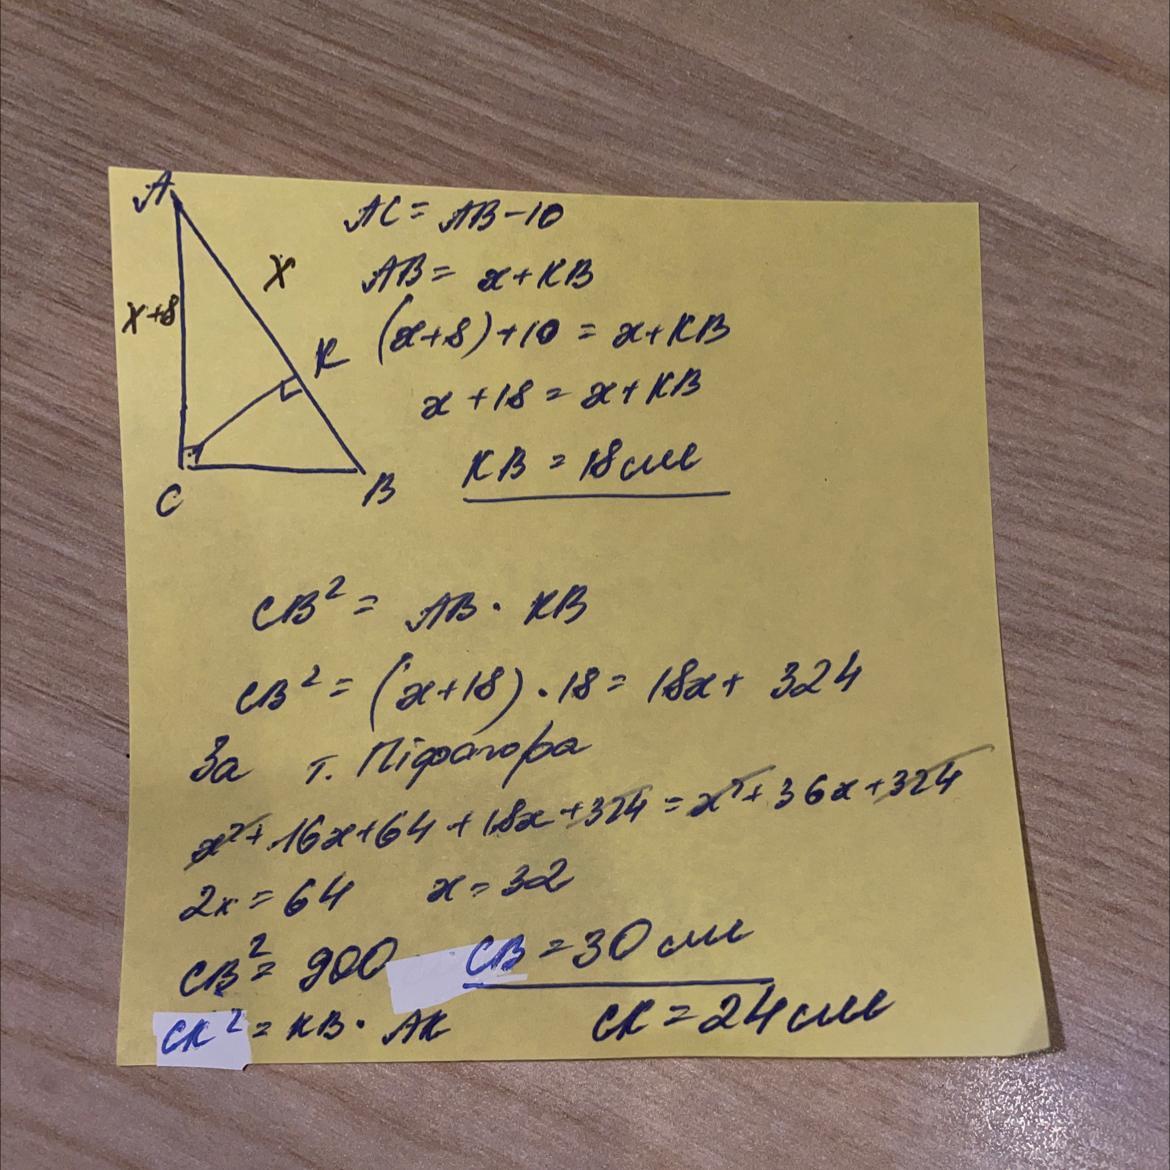 A
AC = AB - 10
x
AB = x + KB
x+8
K
(x+8)+10 = x+KB
x + 18 = x + KB
KB = 18 см
C
B
CB² = AB · KB
CB² = (x+18) · 18 = 18x + 324
За т. Піфагора
x² + 16x + 64 + 18x + 324 = x² + 36x + 324
2x = 64 x = 32
CB² = 900 CB = 30 см
CK² = KB · AK CK = 24 см